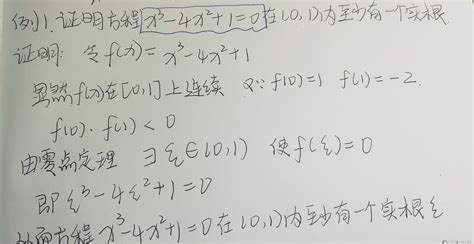 例1.证明方程x³-4x²+1=0在(0,1)内至少有一个实根.
证明: 令f(x)=x³-4x²+1
显然f(x)在[0,1]上连续 又∵f(0)=1 f(1)=-2.
f(0)·f(1)<0
由零点定理 ∃ξ∈(0,1) 使f(ξ)=0
即ξ³-4ξ²+1=0
从而方程x³-4x²+1=0在(0,1)内至少有一个实根ξ